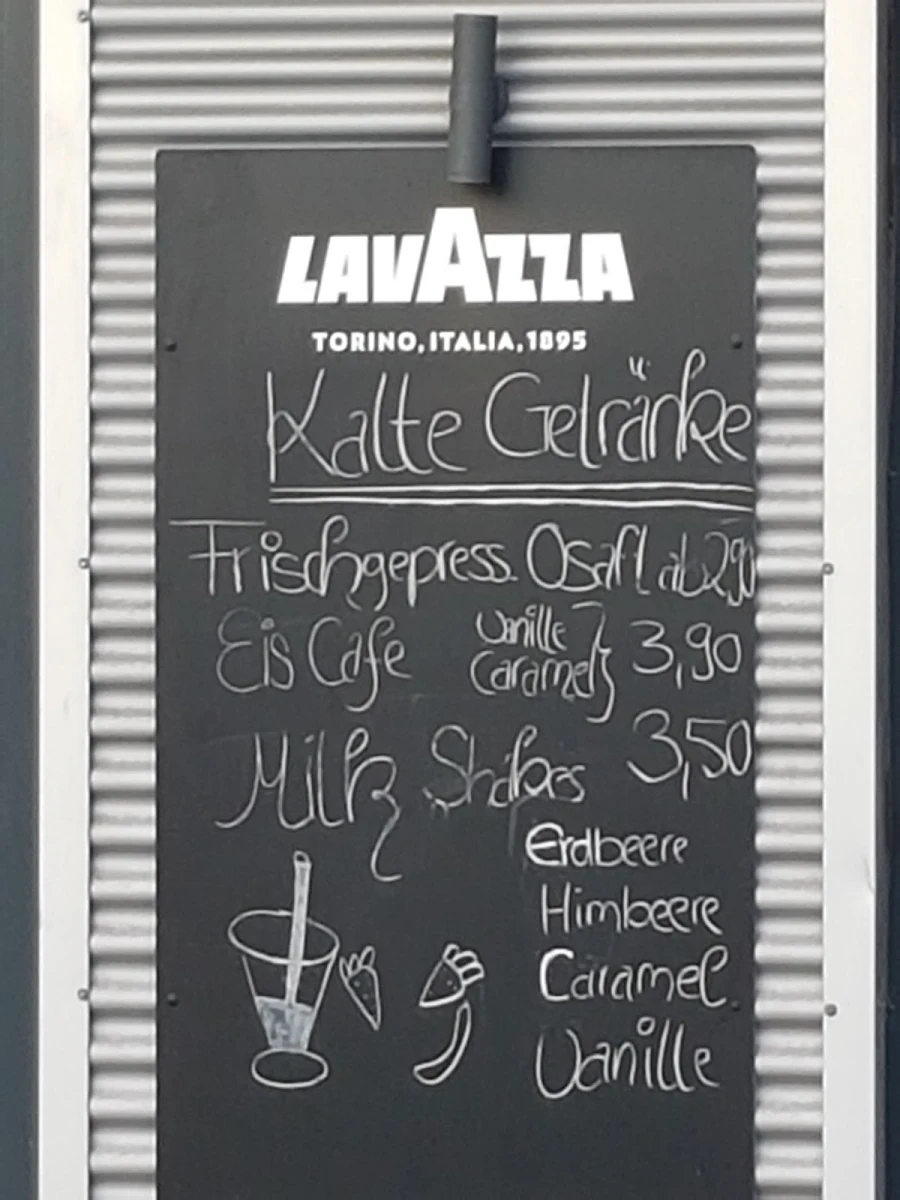 LAVAZZA
TORINO, ITALIA, 1895
Kalte Getränke
Frischgepress. Osaft ab 2,90
Eis Cafe Vanille 3,90
Caramel
Milk Shakes 3,50
Erdbeere
Himbeere
Caramel
Vanille